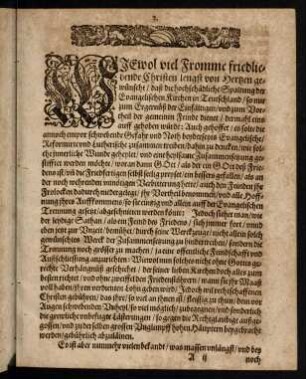 2.
WIewol viel Fromme friedlie-
bende Christen lengst von Hertzen ge-
wünscht / daß die hochschädliche Spaltung der
Evangelischen Kirchen in Teutschland / so nur
zum Ergernuß der Einfältigen / und zum Vor-
theil der gemeinen Feinde dienet / dermahl eins
auff gehoben würde: Auch gehoffet / es solte die
annoch empor schwebende Gefahr und Noth beyderseits Evangelische /
Reformirte und Lutherische zusammen treiben / dahin zu dencken / wie sol-
che jnnerliche Wunde geheylet / und eine heylsame Zusammensetzung ge-
stifftet werden möchte / woran dann GOtt / als der ein GOtt des Frie-
dens ist / und die Friedfertigen selbst seelig preyset / ein besseres gefallen / als an
der noch wehrenden unnötigen Verbitterung hette / auch den Feinden jhr
Frolocken dadurch nidergelegt / jhr Vortheil benommen / und alle Hoff-
nung jhres Auffkommens / so sie eintzig und allein auff der Evangelischen
Trennung gesetzt / abgeschnitten werden könte: Jedoch siehet man / wie
der leydige Sathan / als ein Feind des Friedens / sich jmmer fort / und
eben jetzt zur Unzeit / bemühet / durch seine Werckzeuge / nicht allein solch
gewünschtes Werck der Zusammensetzung zu hinderen / sondern die
Trennung noch grösser zu machen / ja eine offentliche Feindschafft und
Auffschliessung anzurichten: Wiewol nun solches nicht ohne Gottes ge-
rechte Verhängnuß geschicht / der seiner lieben Kirchen doch alles zum
besten richtet / und ohne zweiffel den Friedensstöhrern / wann sie jhr Maaß
voll haben / jhren verdienten Lohn geben wird / Jedoch wil auffrichtigen
Christen gebühren / das jhre / so viel an jhnen ist / fleissig zu thun / dem vor
Augen schwebenden Unheyl / so viel möglich / zubegegnen / und sonderlich
die grewliche unbefugte Lästerungen / so gegen die Rechtglaubige außge-
gossen / und zu derselben grossen Unglimpff hohen Häuptern beygebracht
werden / gebührlich abzulähnen.
Es ist aber nunmehr vielen bekandt / was massen unlängst / und bey
A ij noch